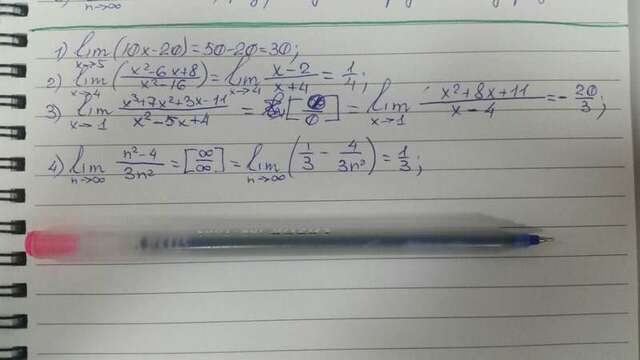 n→∞
1) lim x→5 (10x-20)=50-20=30;
2) lim x→4 (x²-6x+8 / x²-16) = lim x→4 x-2 / x+4 = 1/4;
3) lim x→1 x³+7x²+3x-11 / x²-5x+4 = [0/0] = lim x→1 x²+8x+11 / x-4 = -20/3;
4) lim n→∞ n²-4 / 3n² = [∞/∞] = lim n→∞ (1/3 - 4/3n²) = 1/3;